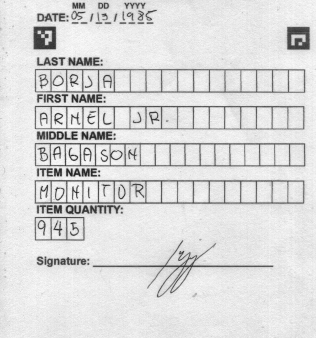 MM DD YYYY
DATE: 05 / 13 / 1985
LAST NAME:
BORJA
FIRST NAME:
ARNEL JR.
MIDDLE NAME:
BAGASON
ITEM NAME:
MONITOR
ITEM QUANTITY:
945
Signature: